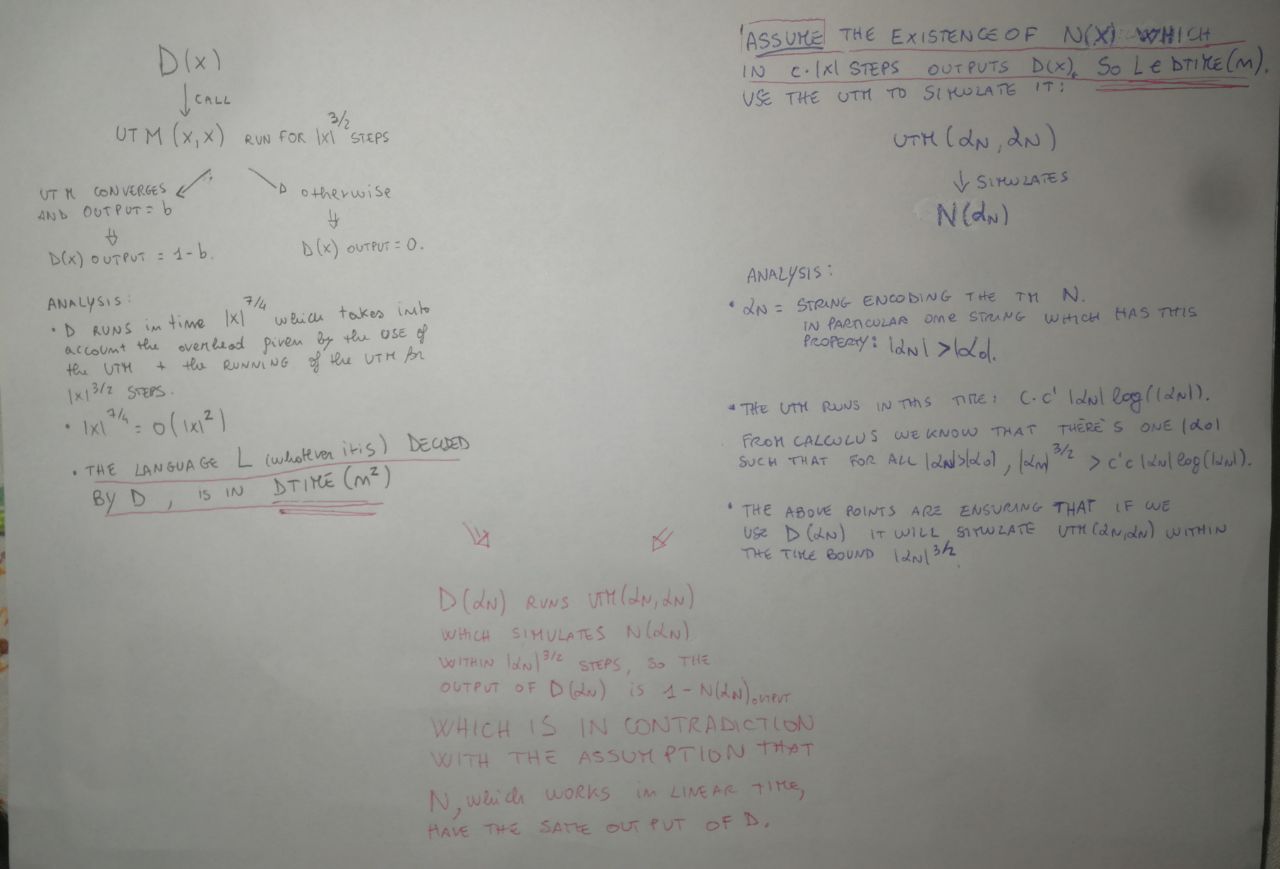 D(x)
↓ CALL
UTM (x,x) RUN FOR |x|^3/2 STEPS
UTM CONVERGES
AND OUTPUT = b
⇓
D(x) OUTPUT = 1-b.
otherwise
⇓
D(x) OUTPUT = 0.
ANALYSIS:
• D RUNS in time |x|^7/4 which takes into
account the overhead given by the USE OF
the UTM + the RUNNING of the UTM for
|x|^3/2 STEPS.
• |x|^7/4 = o(|x|^2)
• THE LANGUAGE L (whatever it is) DECIDED
BY D, IS IN DTIME(n^2)
ASSUME THE EXISTENCE OF N(X) WHICH
IN c·|x| STEPS OUTPUTS D(x), SO L ∈ DTIME(n).
USE THE UTM TO SIMULATE IT:
UTM(αN, αN)
↓ SIMULATES
N(αN)
ANALYSIS:
• αN = STRING ENCODING THE TM N.
IN PARTICULAR ONE STRING WHICH HAS THIS
PROPERTY: |αN| > |α0|.
• THE UTM RUNS IN THIS TIME: C·C' |αN| log(|αN|).
FROM CALCULUS WE KNOW THAT THERE'S ONE |α0|
SUCH THAT FOR ALL |αN|>|α0|, |αN|^3/2 > c'c |αN| log(|αN|).
• THE ABOVE POINTS ARE ENSURING THAT IF WE
USE D(αN) IT WILL SIMULATE UTM(αN,αN) WITHIN
THE TIME BOUND |αN|^3/2.
D(αN) RUNS UTM(αN,αN)
WHICH SIMULATES N(αN)
WITHIN |αN|^3/2 STEPS, SO THE
OUTPUT OF D(αN) IS 1-N(αN)OUTPUT
WHICH IS IN CONTRADICTION
WITH THE ASSUMPTION THAT
N, which WORKS IN LINEAR TIME,
HAVE THE SAME OUTPUT OF D.